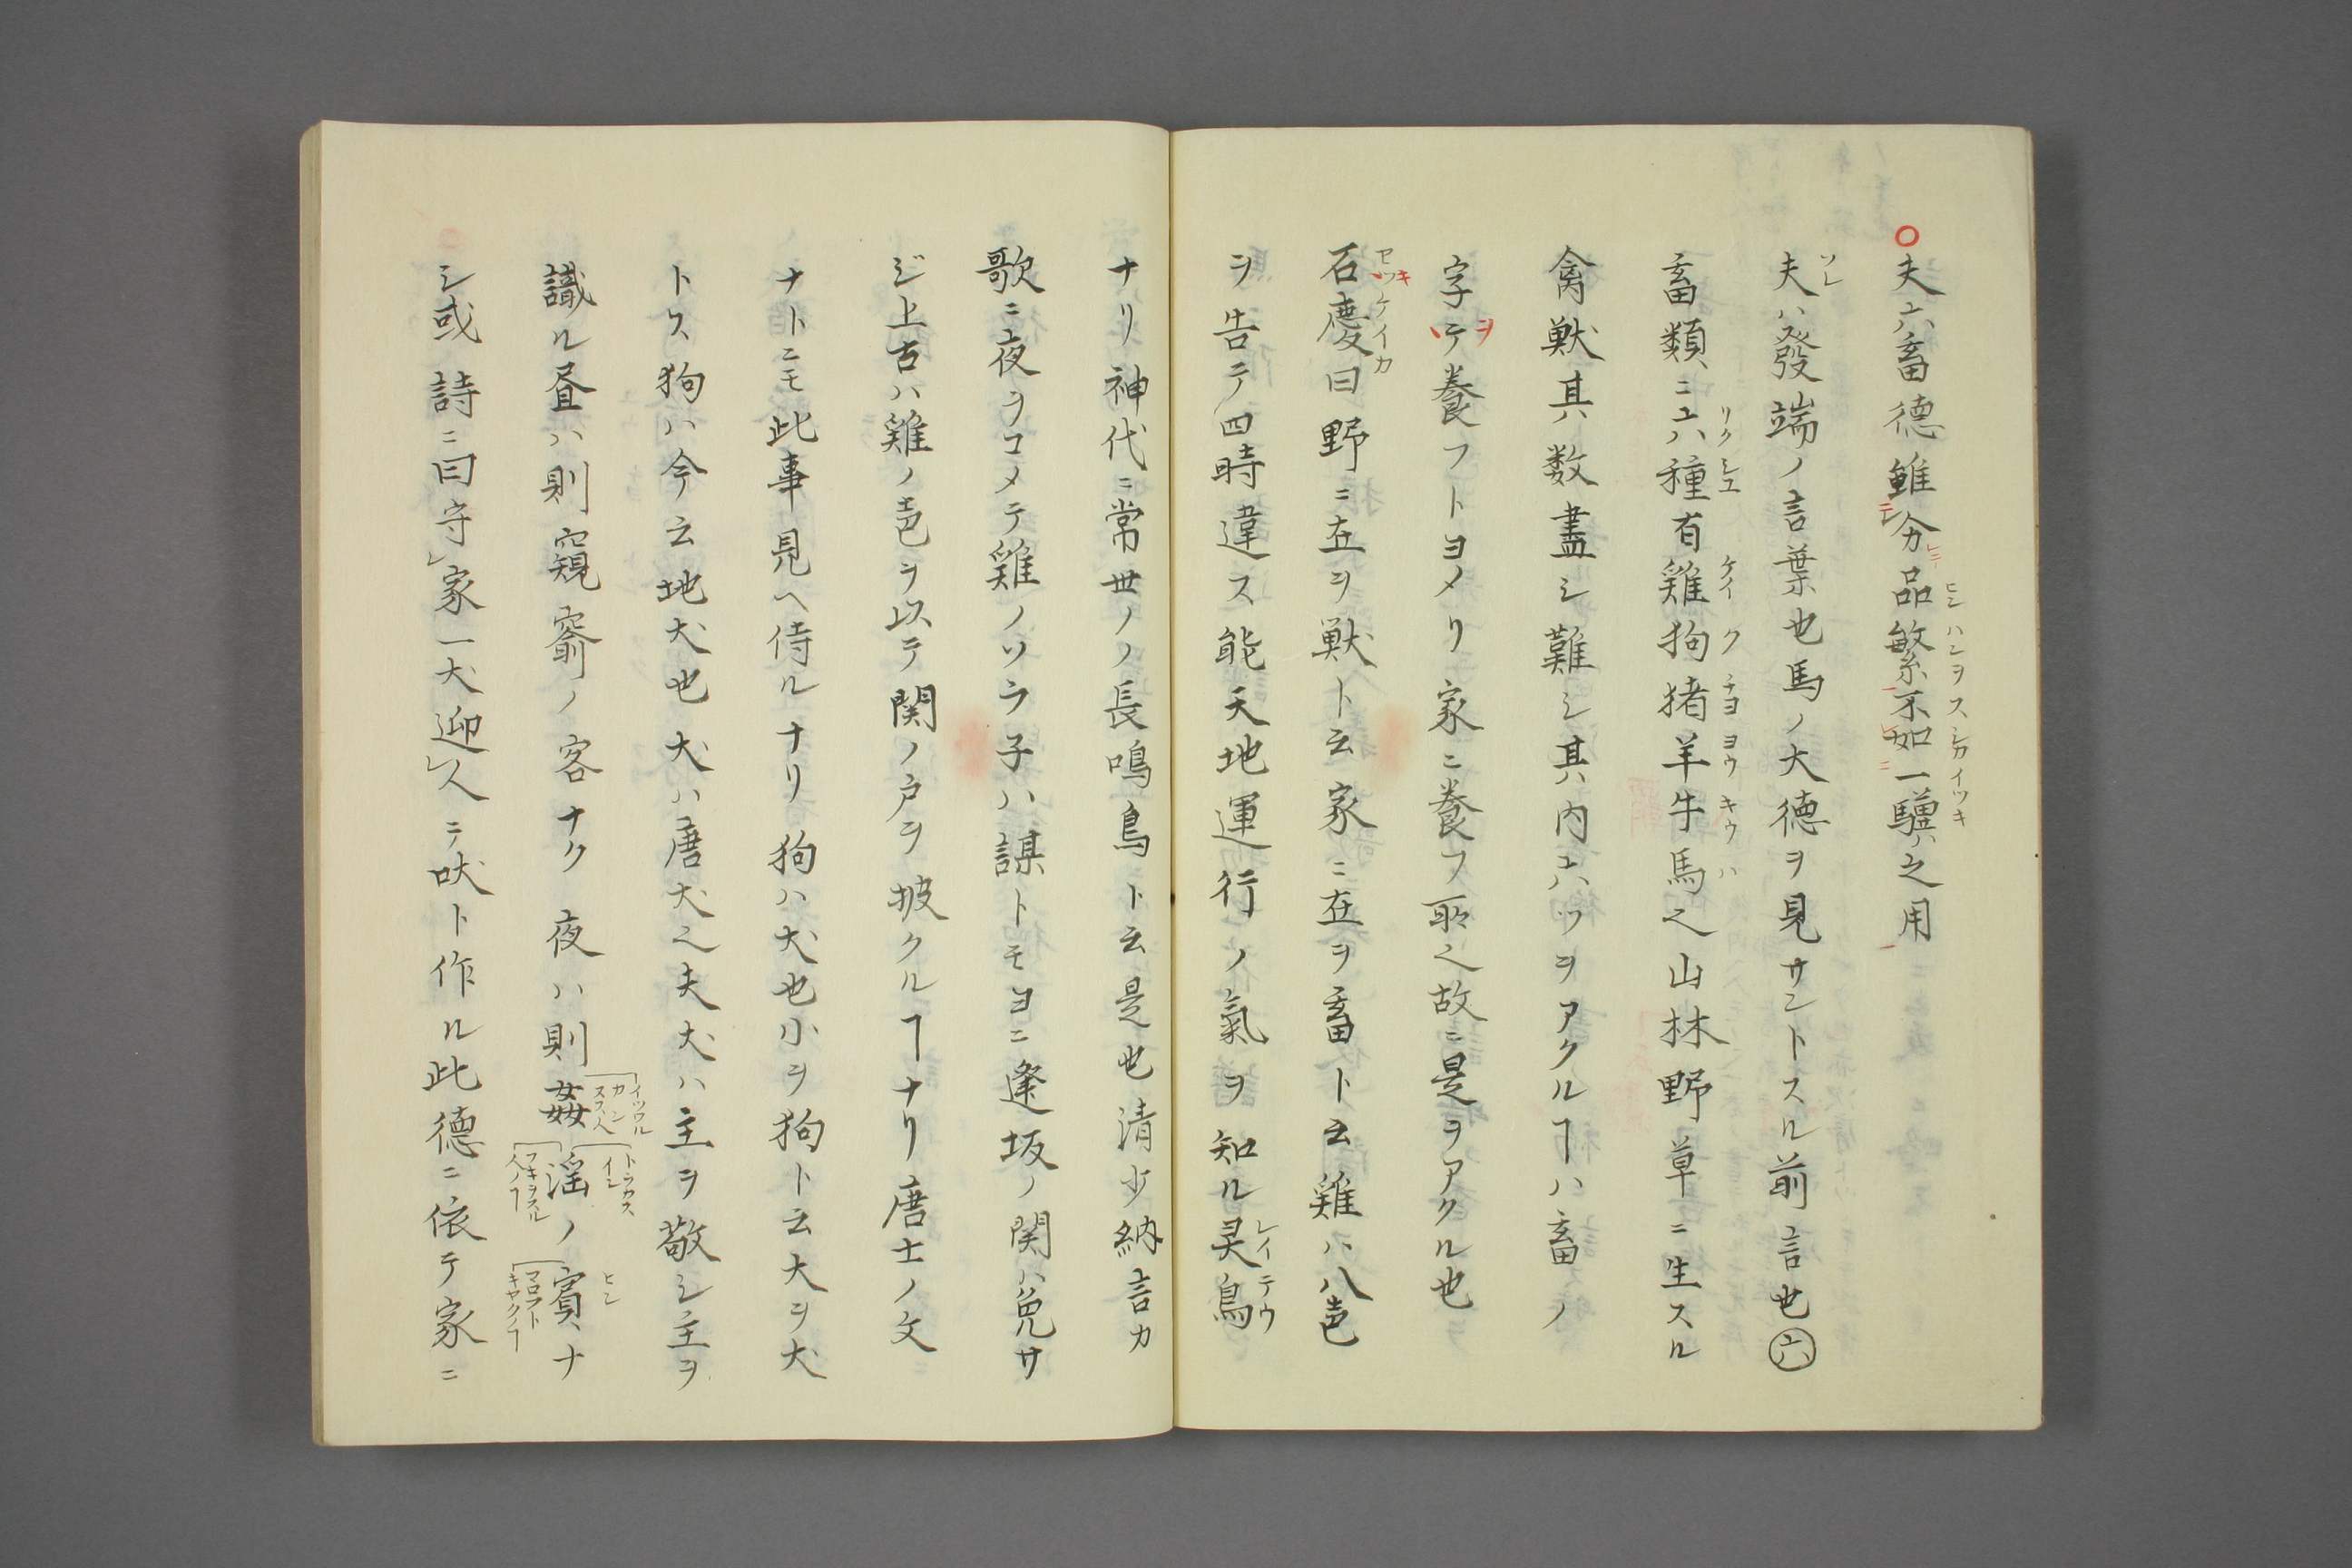 夫六畜德雖分品繁不如一驥之用
夫ハ發端ノ言葉也馬ノ大德ヲ見サントスル前言也六
畜類ニ六種有雞狗猪羊牛馬之山林野草ニ生スル
禽獣其数盡シ難シ其内六ツヲアクルヿハ畜ノ
字テ養フトヨメリ家ニ養フ所之故ニ是ヲアクル也
石慶曰野ニ在ヲ獣ト云家ニ在ヲ畜ト云雞ハ八色
ヲ告テ四時違ス能天地運行ノ氣ヲ知ル灵鳥
ナリ神代ニ常世ノ長鳴鳥ト云是也清少納言カ
歌ニ夜ヲコメテ雞ノソラ子ハ謀トモヨニ逢坂ノ関ハ免サ
ジ上古ハ雞ノ色ヲ以テ関ノ戸ヲ披クルヿナリ唐土ノ文
ナトニモ此事見ヘ侍ルナリ狗ハ犬也小ヲ狗ト云大ヲ犬
トス狗ハ今云地犬也犬ハ唐犬之夫犬ハ主ヲ敬シ主ヲ
識ル昼ハ則窺窬ノ客ナク夜ハ則姦淫ノ賓ナ
シ或詩ニ曰守レ家一犬迎レ人ニテ吠ト作ル此德ニ依テ家ニ